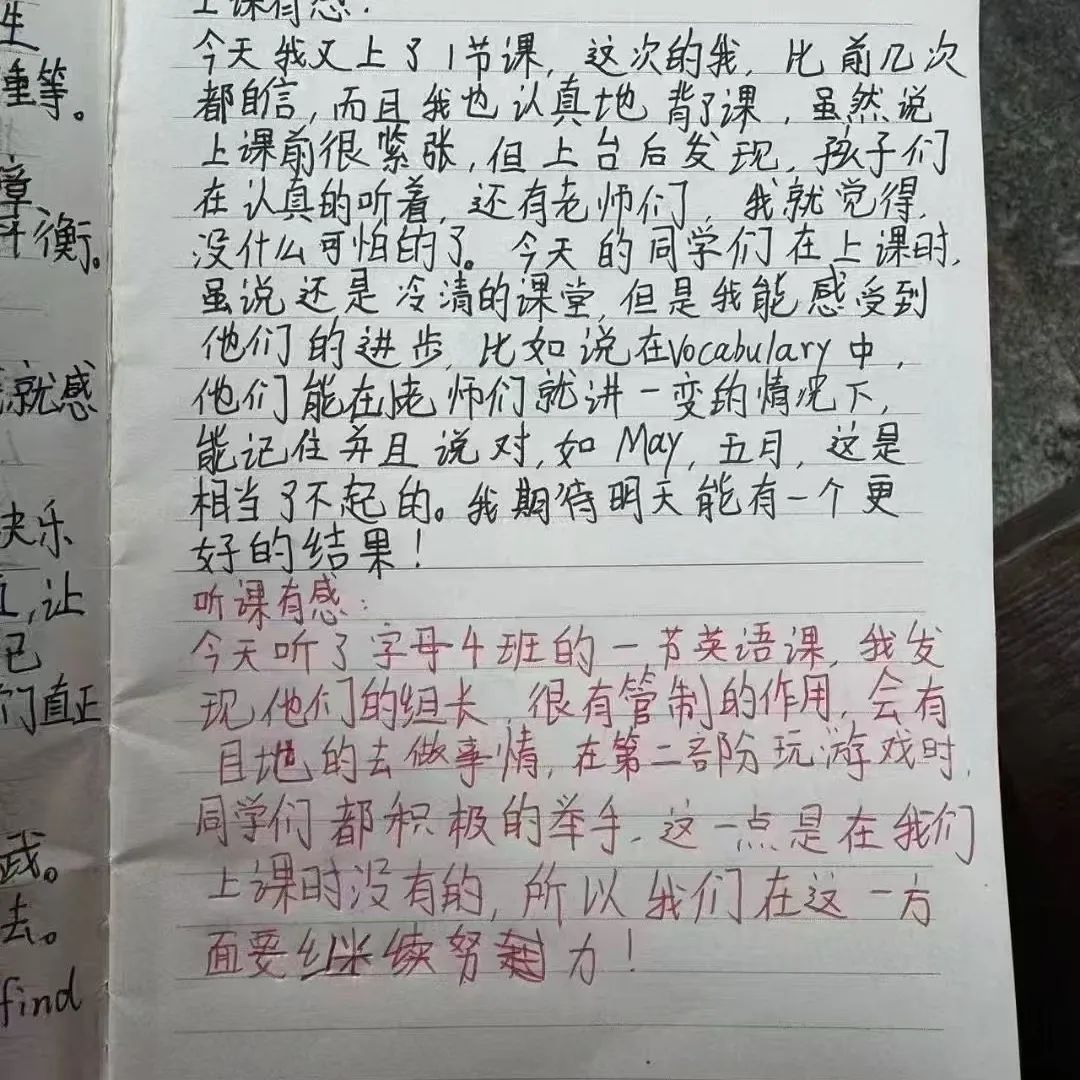 生
重等。
障
衡。
就感
快乐
让
己
们直正
武。
去。
find
上课有感：
今天我又上了1节课，这次的我，比前几次
都自信，而且我也认真地背了课，虽然说
上课前很紧张，但上台后发现，孩子们
在认真的听着，还有老师们，我就觉得，
没什么可怕的了。今天的同学们在上课时，
虽说还是冷清的课堂，但是我能感受到
他们的进步，比如说在Vocabulary中，
他们能在老师们就讲一变的情况下，
能记住并且说对，如May，五月，这是
相当了不起的。我期待明天能有一个更
好的结果！
听课有感：
今天听了字母4班的一节英语课，我发
现他们的组长，很有管制的作用，会有
目地的去做事情，在第二部份玩游戏时，
同学们都积极的举手，这一点是在我们
上课时没有的，所以我们在这一方
面要继续努力！